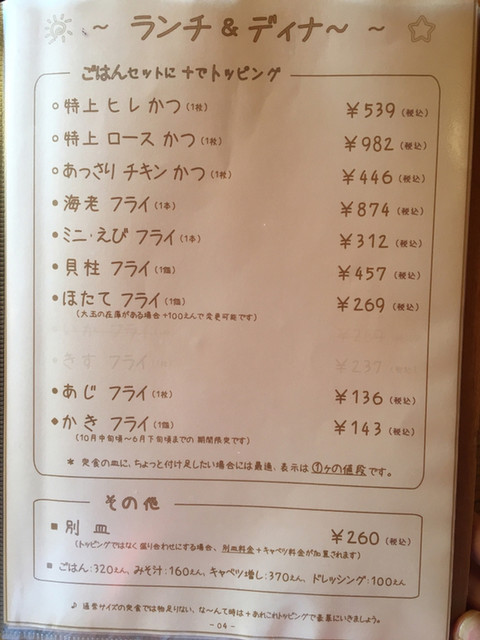 ~ ランチ & ディナ~ ~
ごはんセットに +でトッピング
○特上 ヒレ かつ(1枚) ￥539(税込)
○特上 ロース かつ(1枚) ￥982(税込)
○あっさり チキン かつ(1枚) ￥446(税込)
●海老 フライ(1本) ￥874(税込)
●ミニ・えび フライ(1本) ￥312(税込)
●貝柱 フライ(1個) ￥457(税込)
●ほたて フライ(1個) ￥269(税込)
(大玉の在庫がある場合 +100えんで変更可能です)
きす フライ ￥237
●あじ フライ(1枚) ￥136(税込)
◆かき フライ(1個) ￥143(税込)
(10月中旬頃~6月下旬頃までの 期間限定です)
* 定食の皿に、ちょっと付け足したい場合には最適。表示は①ヶの値段です。
その他
■別 皿 ￥260(税込)
(トッピングではなく盛り合わせにする場合、別皿料金+キャベツ料金が加算されます)
■ごはん:320えん、みそ汁:160えん、キャベツ増し:370えん、ドレッシング:100えん
♪ 通常サイズの定食では物足りない、な~んて時は +あれこれトッピングで豪華にいきましょう。
- 04 -